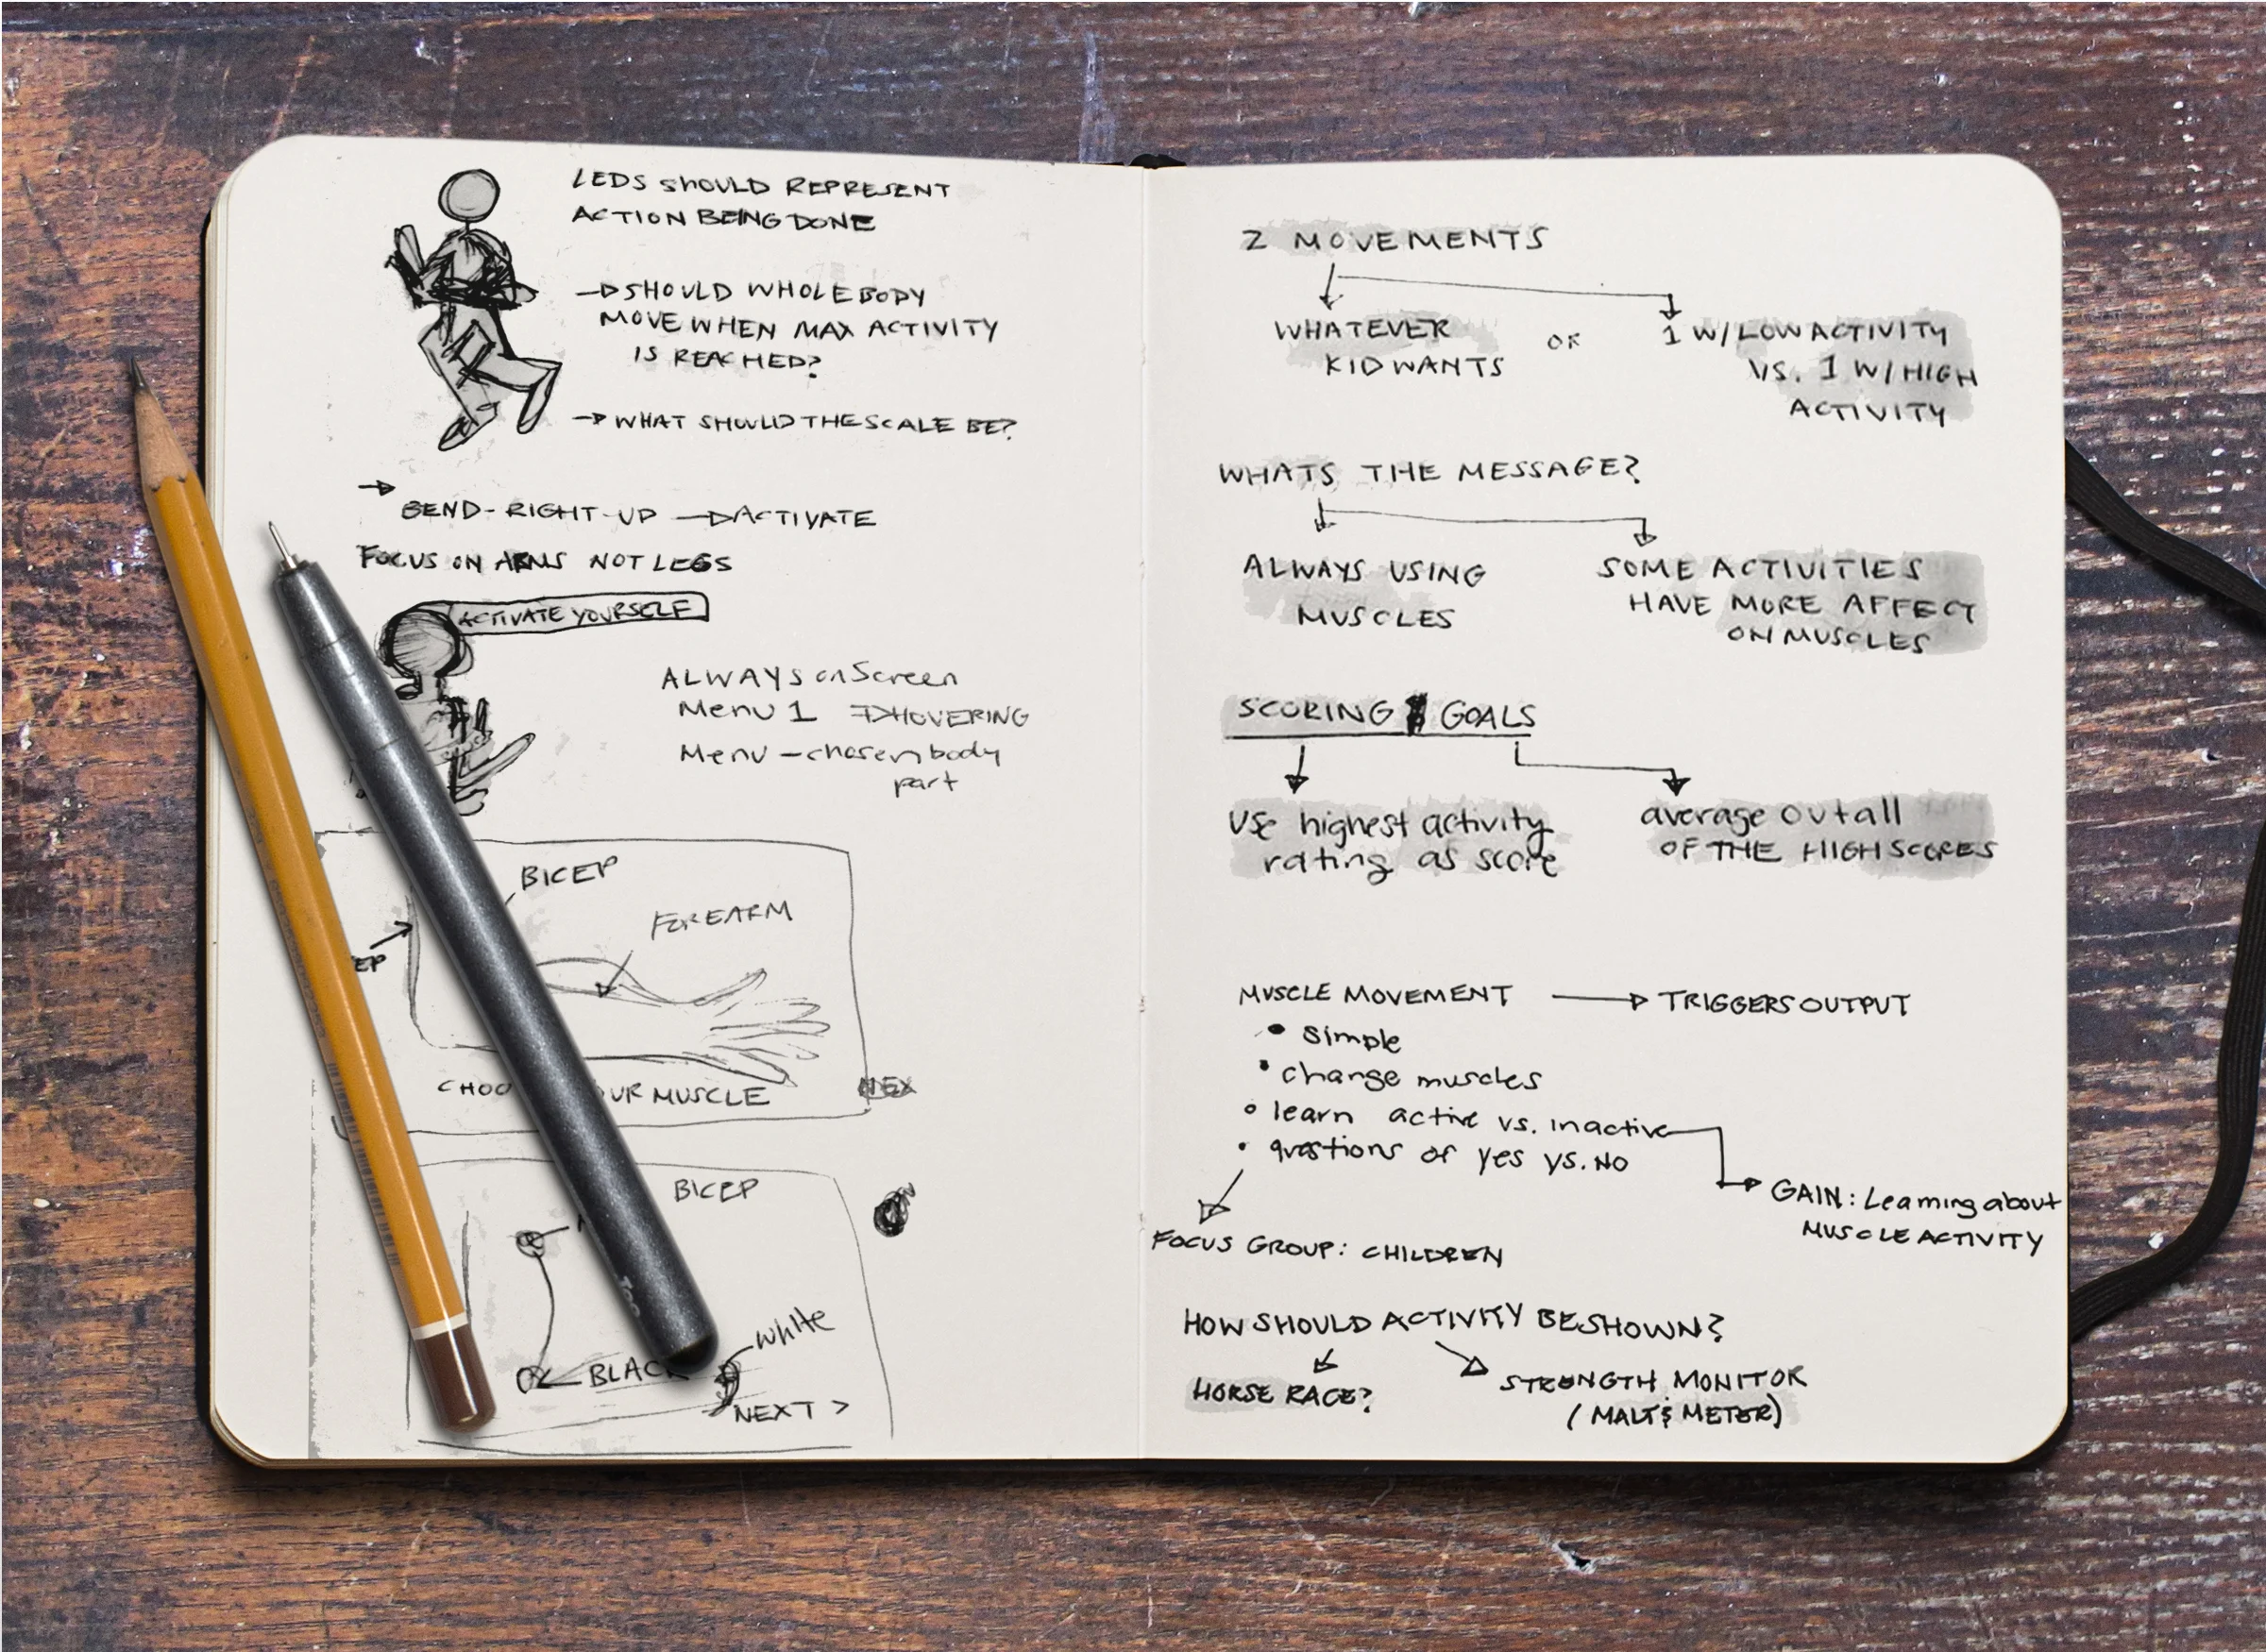 LEDS SHOULD REPRESENT
ACTION BEING DONE
→ SHOULD WHOLE BODY
MOVE WHEN MAX ACTIVITY
IS REACHED?
→ WHAT SHOULD THE SCALE BE?
→
BEND-RIGHT-UP → ACTIVATE
FOCUS ON ARMS NOT LEGS
ACTIVATE YOURSELF
ALWAYS onScreen
Menu 1 → HOVERING
Menu - chosen body
part
BICEP
FOREARM
EP
CHOO UR MUSCLE
NEX
BICEP
White
BLACK
NEXT >
2 MOVEMENTS
WHATEVER
KID WANTS
OR
1 W/LOW ACTIVITY
VS. 1 W/HIGH
ACTIVITY
WHATS THE MESSAGE?
ALWAYS USING
MUSCLES
SOME ACTIVITIES
HAVE MORE AFFECT
ON MUSCLES
SCORING GOALS
Use highest activity
rating as score
average out all
OF THE HIGH SCORES
MUSCLE MOVEMENT → TRIGGERS OUTPUT
• simple
• change muscles
• learn active vs. inactive
• questions of yes vs. NO
GAIN: Learning about
MUSCLE ACTIVITY
FOCUS GROUP: CHILDREN
HOW SHOULD ACTIVITY BE SHOWN?
HORSE RACE?
STRENGTH MONITOR
METER)